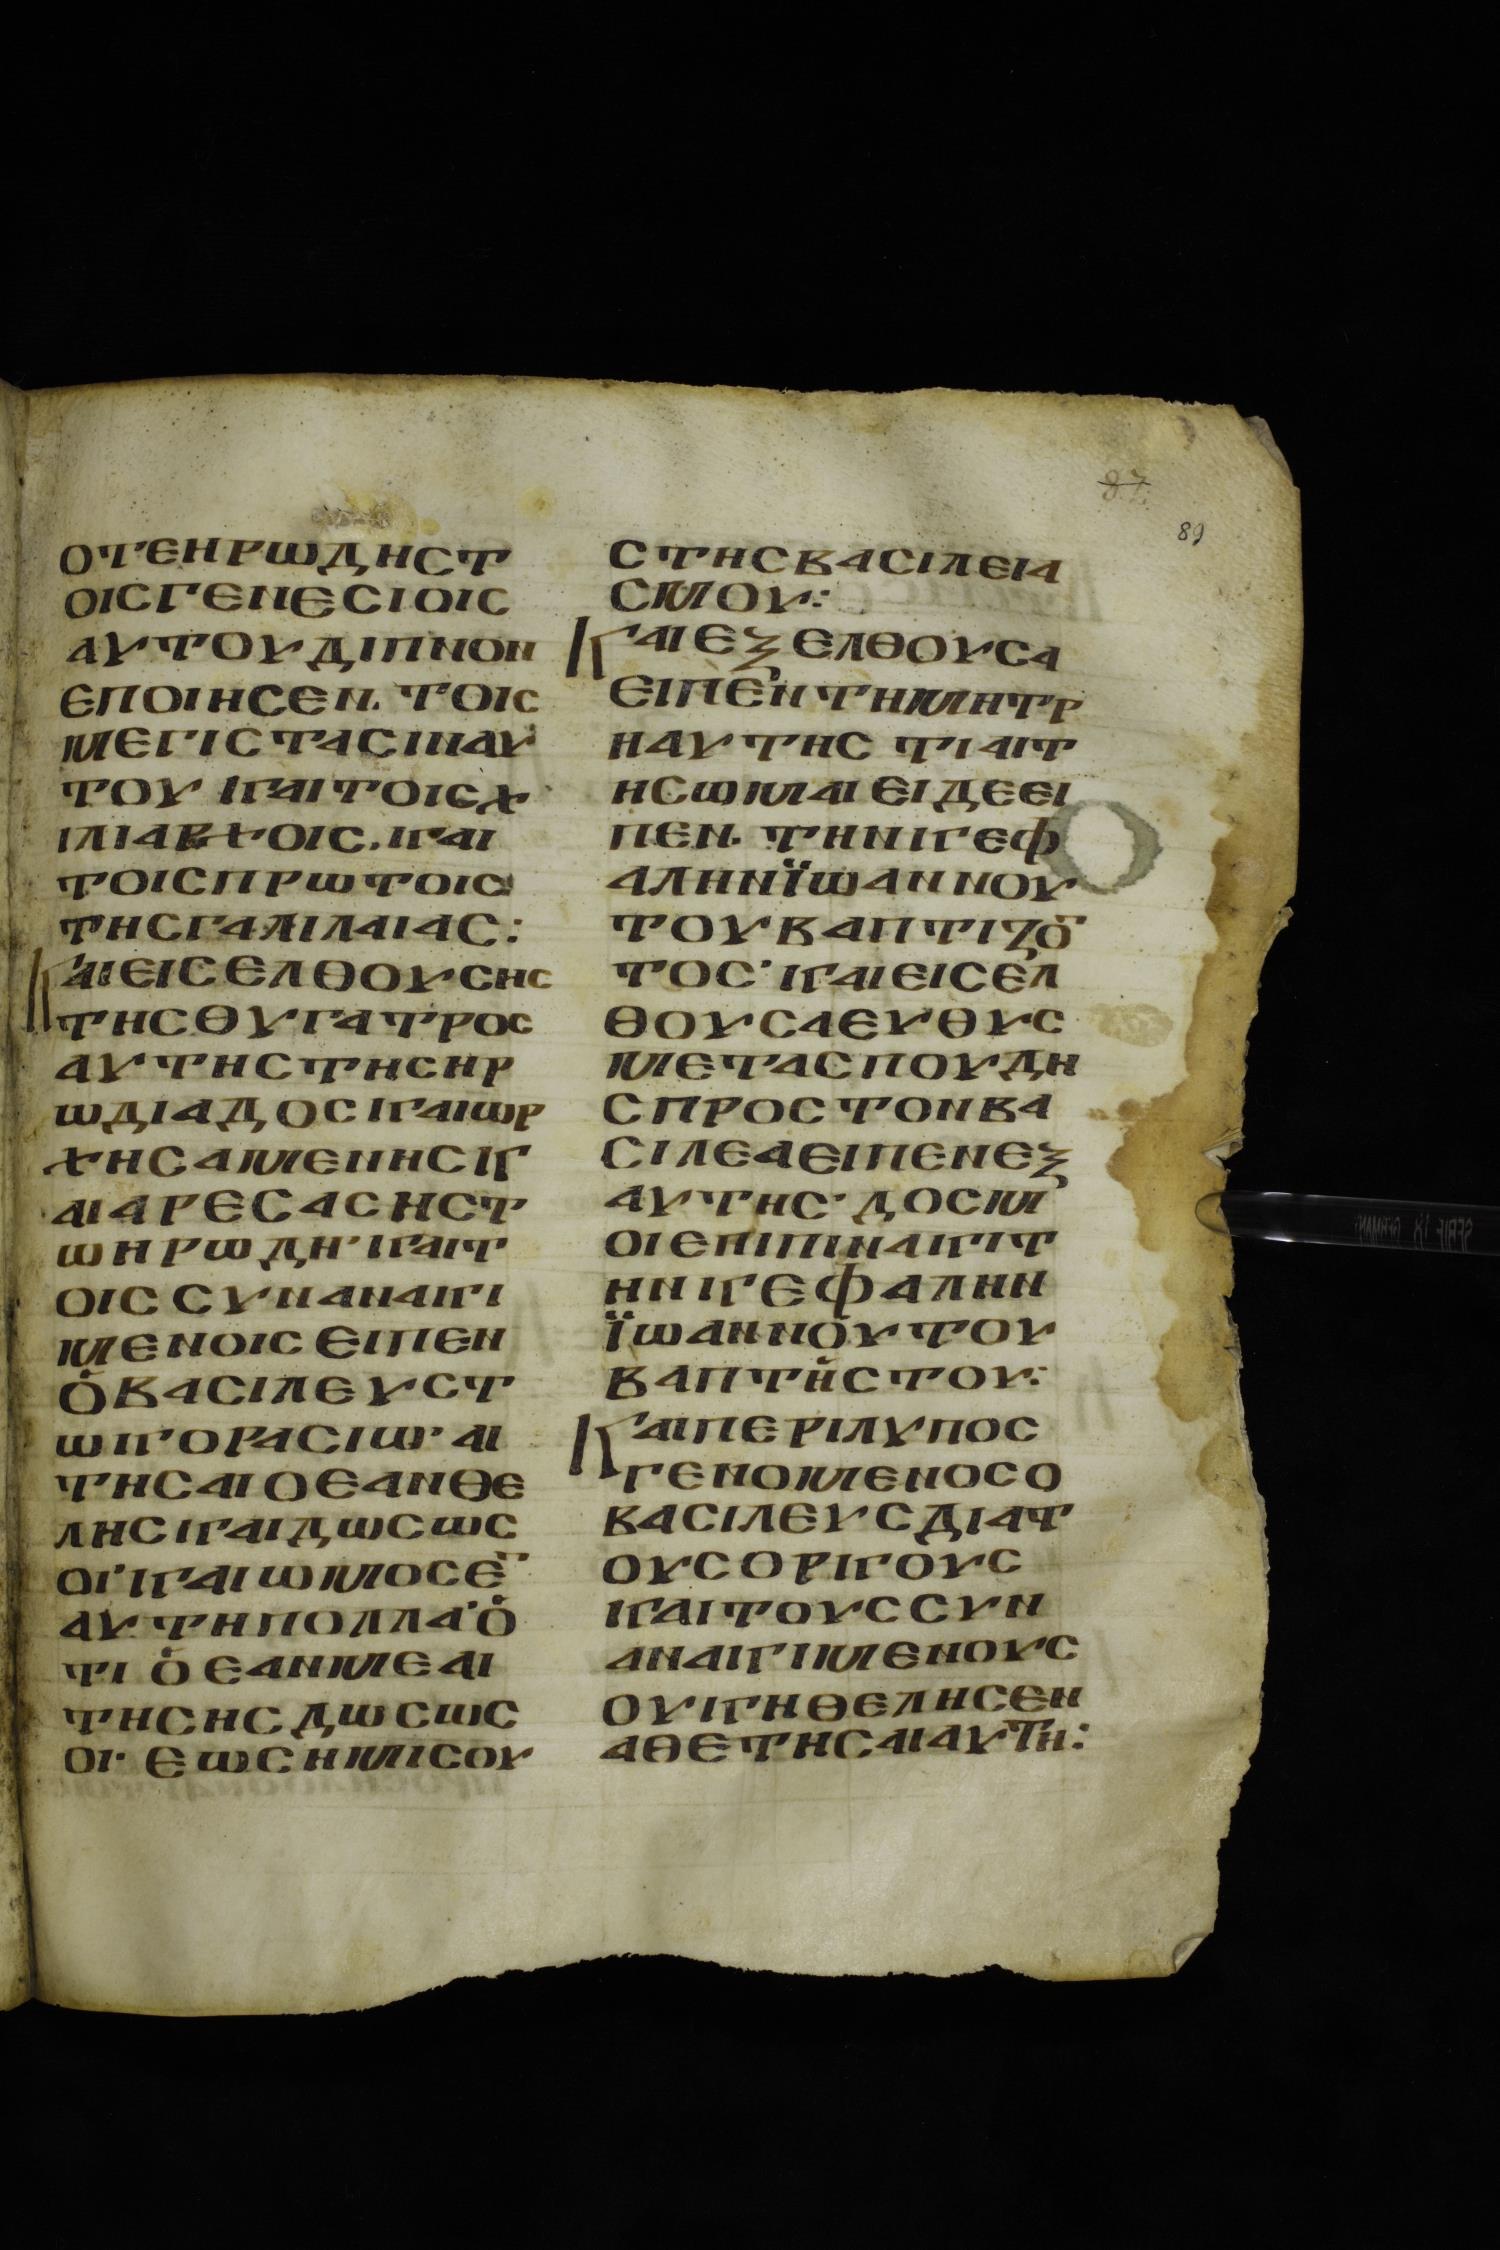 87.
89
ΟΤΕΗΡΩΔΗСΤ
ΟΙСΓΕΝΕСΙΟΙС
ΑΥΤΟΥΔΙΠΝΟΝ
ΕΠΟΙΗСΕΝ. ΤΟΙС
ΜΕΓΙСΤΑСΙΝΑΥ
ΤΟΥ ΚΑΙΤΟΙСΧ
ΙΛΙΑΡΧΟΙС.ΚΑΙ
ΤΟΙСΠΡΩΤΟΙС
ΤΗСΓΑΛΙΛΑΙΑС:
ΚΑΙΕΙСΕΛΘΟΥСΗС
ΤΗСΘΥΓΑΤΡΟС
ΑΥΤΗСΤΗСΗΡ
ΩΔΙΑΔΟСΚΑΙΩΡ
ΧΗСΑΜΕΝΗСΚ
ΑΙΑΡΕСΑСΗСΤ
ΩΗΡΩΔΗ·ΚΑΙΤ
ΟΙССΥΝΑΝΑΚΙ
ΜΕΝΟΙСΕΙΠΕΝ
ΟΒΑСΙΛΕΥСΤ
ΩΚΟΡΑСΙΩ·ΑΙ
ΤΗСΑΙΟΕΑΝΘΕ
ΛΗСΚΑΙΔΩСΩС
ΟΙ·ΚΑΙΩΜΟСΕ̅
ΑΥΤΗΠΟΛΛΑ·Ο
ΤΙ ΟΕΑΝΜΕΑΙ
ΤΗСΗСΔΩСΩС
ΟΙ· ΕΩСΗΜΙСΟΥ
СΤΗСΒΑСΙΛΕΙΑ
СΜΟΥ:
ΚΑΙΕΞΕΛΘΟΥСΑ
ΕΙΠΕΝΤΗΜΗΤΡ
ΗΑΥΤΗС ΤΙΑΙΤ
ΗСΩΜΑΙΕΙΔΕΕΙ
ΠΕΝ. ΤΗΝΚΕΦ
ΑΛΗΝΪΩΑΝΝΟΥ
ΤΟΥΒΑΠΤΙΖΟ̅
ΤΟС·ΚΑΙΕΙСΕΛ
ΘΟΥСΑΕΥΘΥС
ΜΕΤΑСΠΟΥΔΗ
СΠΡΟСΤΟΝΒΑ
СΙΛΕΑΕΙΠΕΝΕΞ
ΑΥΤΗС·ΔΟСΜ
ΟΙΕΠΙΠΙΝΑΚΙΤ
ΗΝΚΕΦΑΛΗΝ
ΪΩΑΝΝΟΥΤΟΥ
ΒΑΠΤΗСΤΟΥ:
ΚΑΙΠΕΡΙΛΥΠΟС
ΓΕΝΟΜΕΝΟСΟ
ΒΑСΙΛΕΥСΔΙΑΤ
ΟΥСΟΡΚΟΥС
ΚΑΙΤΟΥССΥΝ
ΑΝΑΚΙΜΕΝΟΥС
ΟΥΚΗΘΕΛΗСΕΝ
ΑΘΕΤΗСΑΙΑΥΤΗ: